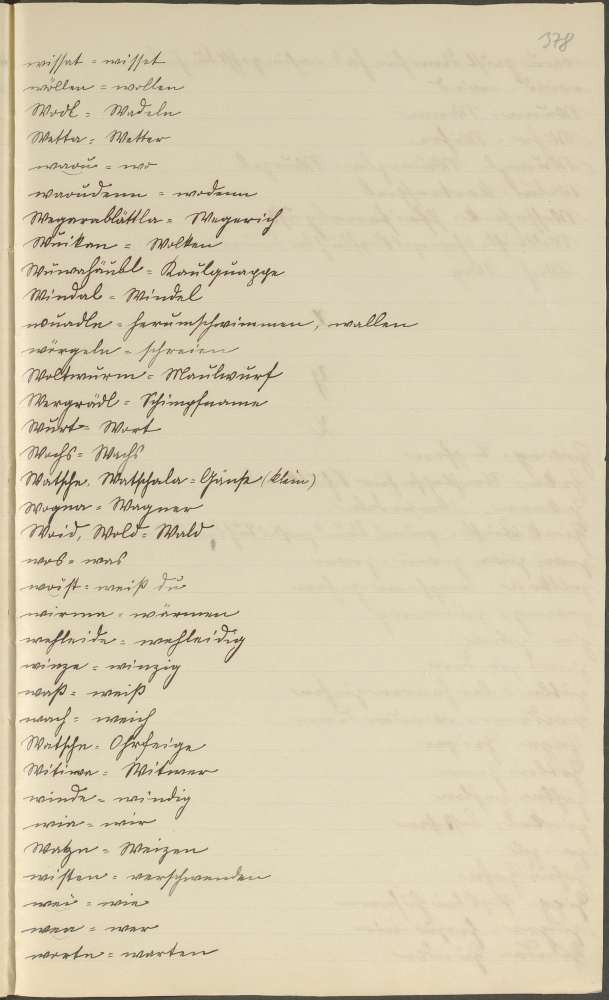 378
wissat = wisset
wöllen = wollen
Wodl = Wadeln
Wetta = Wetter
waou = wo
waoudenn = wodenn
Wegarablättla = Wegerich
Wuikan = Wolken
Wuwahäubl = Kaulquappe
Windal = Windel
wuadln = herumschwimmen, wallen
wörgeln = schreien
Woltwurm = Maulwurf
Wergrädl = Schimpfname
Wurt = Wort
Wochs = Wachs
Watsche, Watschala = Gänse (klein)
Wogna = Wagner
Woid, Wold = Wald
wos = was
woist = weiß du
wirma = wärmen
wehleide = wehleidig
winze = winzig
waß = weiß
wach = weich
Watschn = Ohrfeige
Witiwa = Witwer
winde = windig
wia = wir
Watzn = Weizen
wisten = verschwenden
wei = wie
wea = wer
wortn = warten